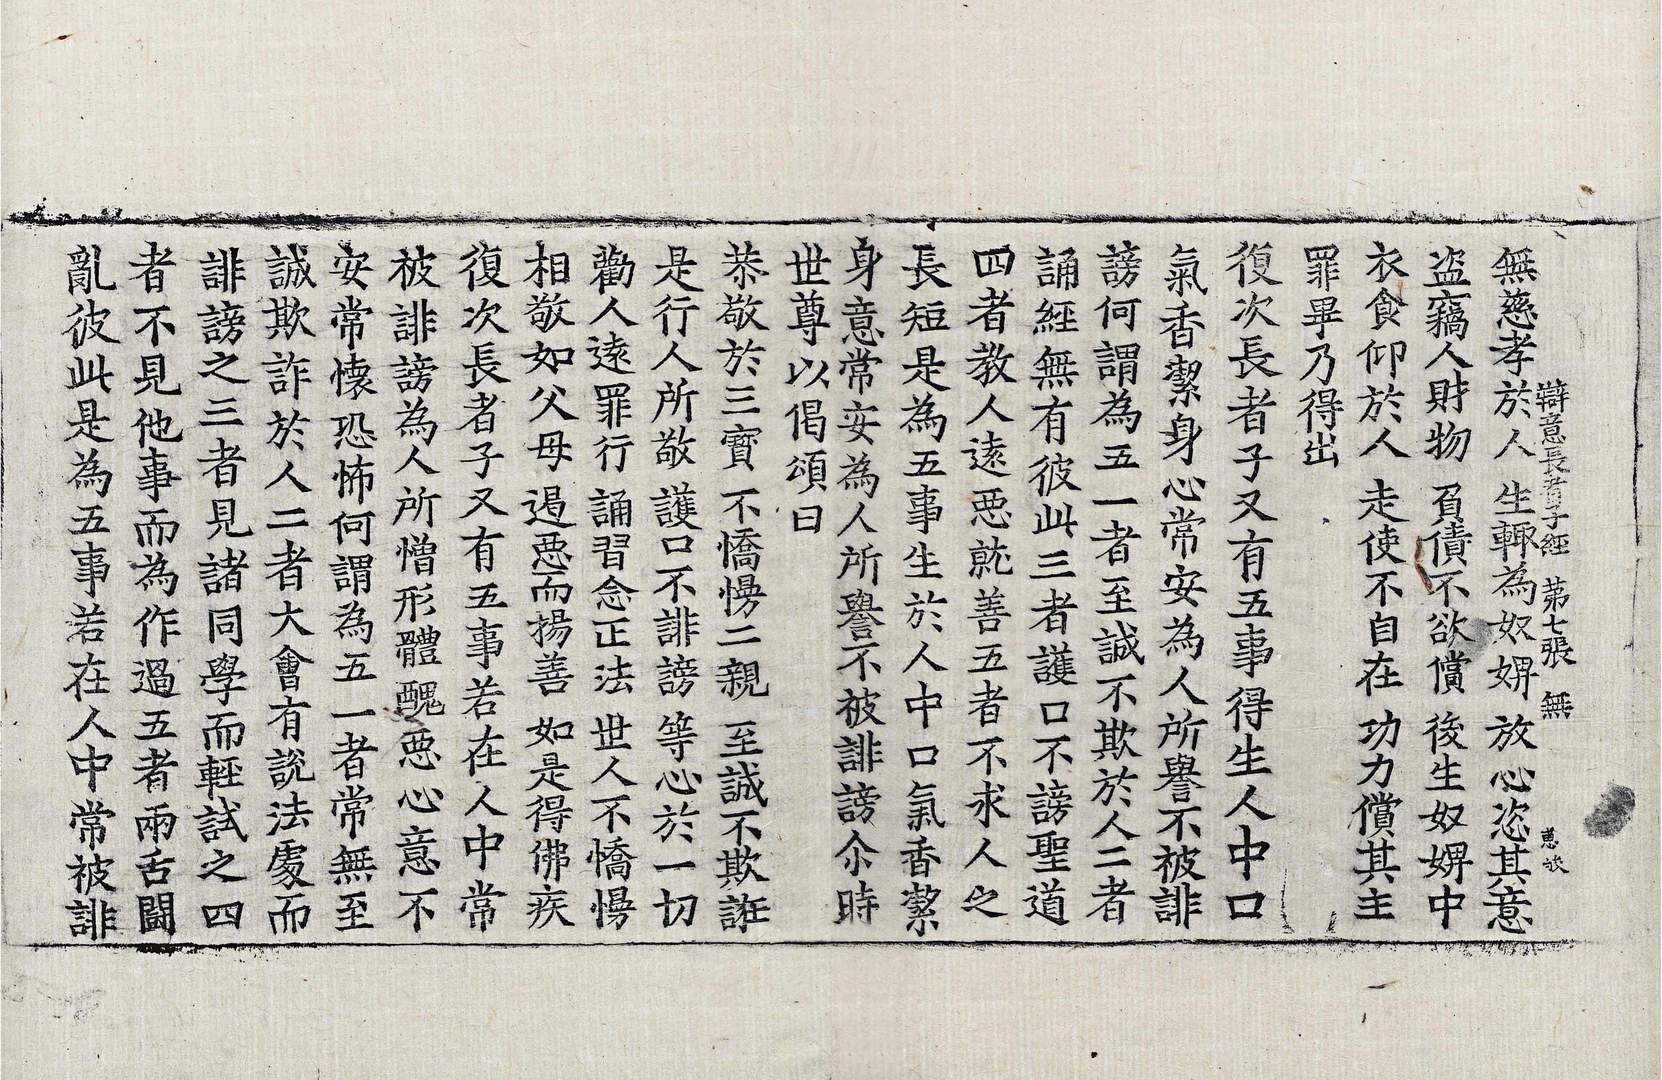 辯意長者子經 第七張 無
無慈孝於人 生輙為奴婢 放心恣其意
盗竊人財物 負債不欲償 後生奴婢中
衣食仰於人 走使不自在 功力償其主
罪畢乃得出
復次長者子又有五事得生人中口
氣香潔身心常安為人所譽不被誹
謗何謂為五一者至誠不欺於人二者
誦經無有彼此三者護口不謗聖道
四者教人遠惡就善五者不求人之
長短是為五事生於人中口氣香潔
身意常安為人所譽不被誹謗尒時
世尊以偈頌曰
恭敬於三寶 不憍慢二親 至誠不欺誑
是行人所敬 護口不誹謗 等心於一切
勸人遠罪行 誦習念正法 世人不憍慢
相敬如父母 遏惡而揚善 如是得佛疾
復次長者子又有五事若在人中常
被誹謗為人所憎形體醜惡心意不
安常懷恐怖何謂為五一者常無至
誠欺詐於人二者大會有說法處而
誹謗之三者見諸同學而輕試之四
者不見他事而為作過五者兩舌鬪
亂彼此是為五事若在人中常被誹